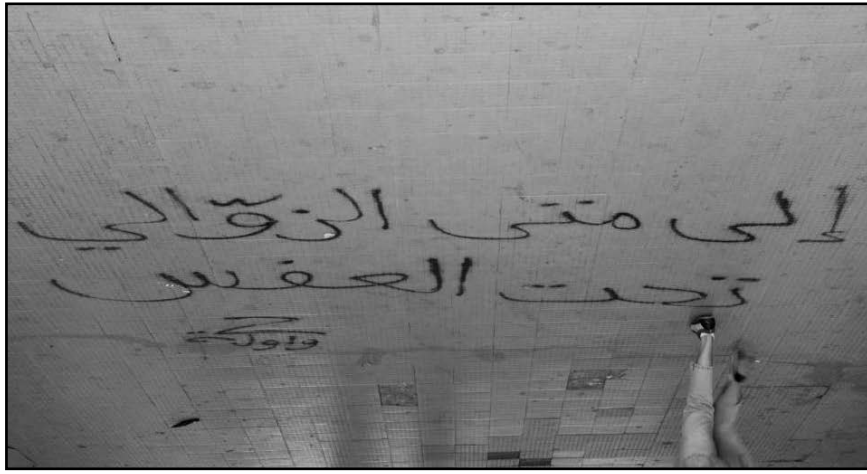 إلى متى الزوّالي
تحت العفس
زواولة